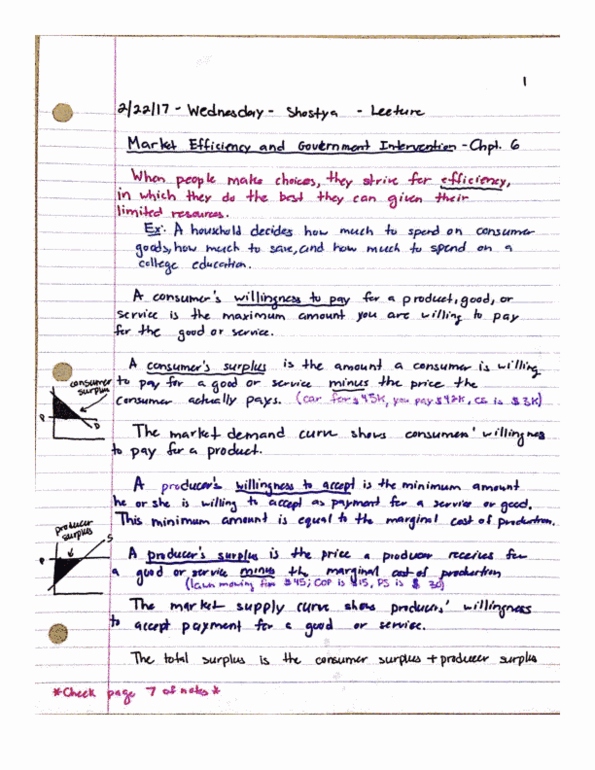 1
2/22/17 - Wednesday - Shostya - Lecture
Market Efficiency and Government Intervention - Chpt. 6
When people make choices, they strive for efficiency,
in which they do the best they can given their
limited resources.
Ex: A household decides how much to spend on consumer
goods, how much to save, and how much to spend on a
college education.
A consumer's willingness to pay for a product, good, or
service is the maximum amount you are willing to pay
for the good or service.
A consumer's surplus is the amount a consumer is willing
to pay for a good or service minus the price the
consumer actually pays. (car for $45K, you pay $42K, CS is $3K)
consumer
surplus
P
D
The market demand curve shows consumers' willingness
to pay for a product.
A producer's willingness to accept is the minimum amount
he or she is willing to accept as payment for a service or good.
This minimum amount is equal to the marginal cost of production.
producer
surplus
S
P
A producer's surplus is the price a producer receives for
a good or service minus the marginal cost of production
(lawn mowing for $45; COP is $15, PS is $30)
The market supply curve shows producers' willingness
to accept payment for a good or service.
The total surplus is the consumer surplus + producer surplus
*Check page 7 of notes*